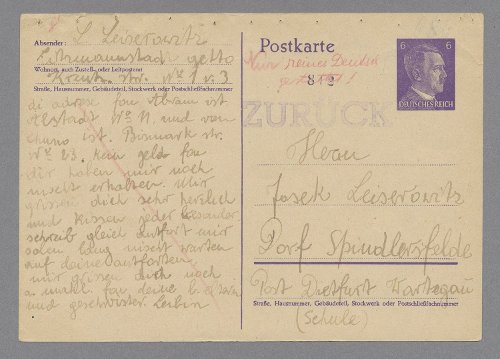 Absender:
L Leiserowitz
Litzmannstadt getto
Wohnort, auch Zustell- oder Leitpostamt
str. No 1 v. 3
Straße, Hausnummer, Gebäudeteil, Stockwerk oder Postschließfachnummer
di adrese fon Abram ist
Altstadt No 11, und von
ist Bismark str.
No 23. Kein geld fon
dir haben mir noch
nischt erhalten. Mir
grissen dich ser herzlich
und kissen jeder besonder
schreib gleich antfort mir
solen lang nischt warten
auf deine antforten
mir grissen dich noch
a mahl fon deine
und geschwister.
Postkarte
Nur reines Deutsch
gestattet!
8 12
6 6
DEUTSCHES REICH
ZURÜCK
Herrn
Josek Leiserowitz
Dorf Spindlersfelde
Post Dietfurt Wartegau
Straße, Hausnummer, Gebäudeteil, Stockwerk oder Postschließfachnummer
(Schule)